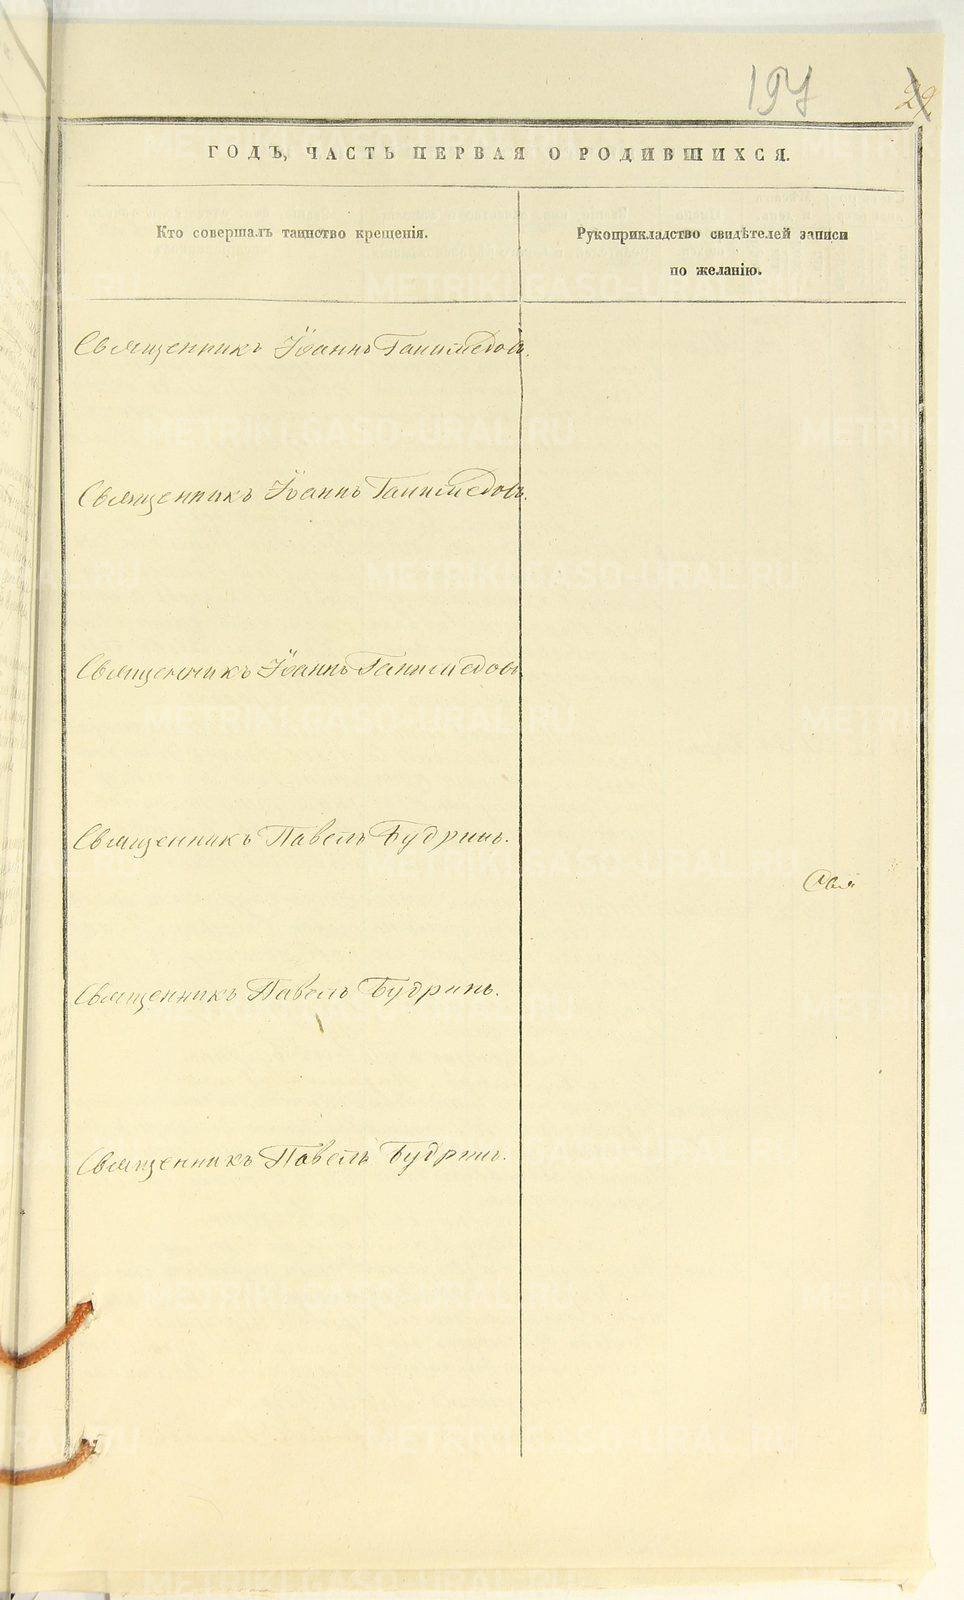 197
22
ГОДЪ, ЧАСТЬ ПЕРВАЯ О РОДИВШИХСЯ.
Кто совершалъ таинство крещенія.
Рукоприкладство свидѣтелей записи
по желанію.
Священникъ Іоаннъ Ганимедовъ.
Священникъ Іоаннъ Ганимедовъ.
Священникъ Іоаннъ Ганимедовъ
Священникъ Павелъ Будринъ.
Свя
Священникъ Павелъ Будринъ.
Священникъ Павелъ Будринъ.
METRIKI.GASO-URAL.RU